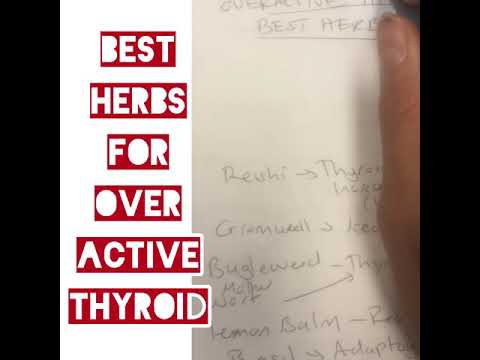 BEST
HERBS
FOR
OVER
ACTIVE
THYROID
OVERACTIVE
BEST HERB
Reishi → Thyro
Gromwell →
Bugleweed - Thy
Wort
Lemon Balm - Re
Basil → Adapto